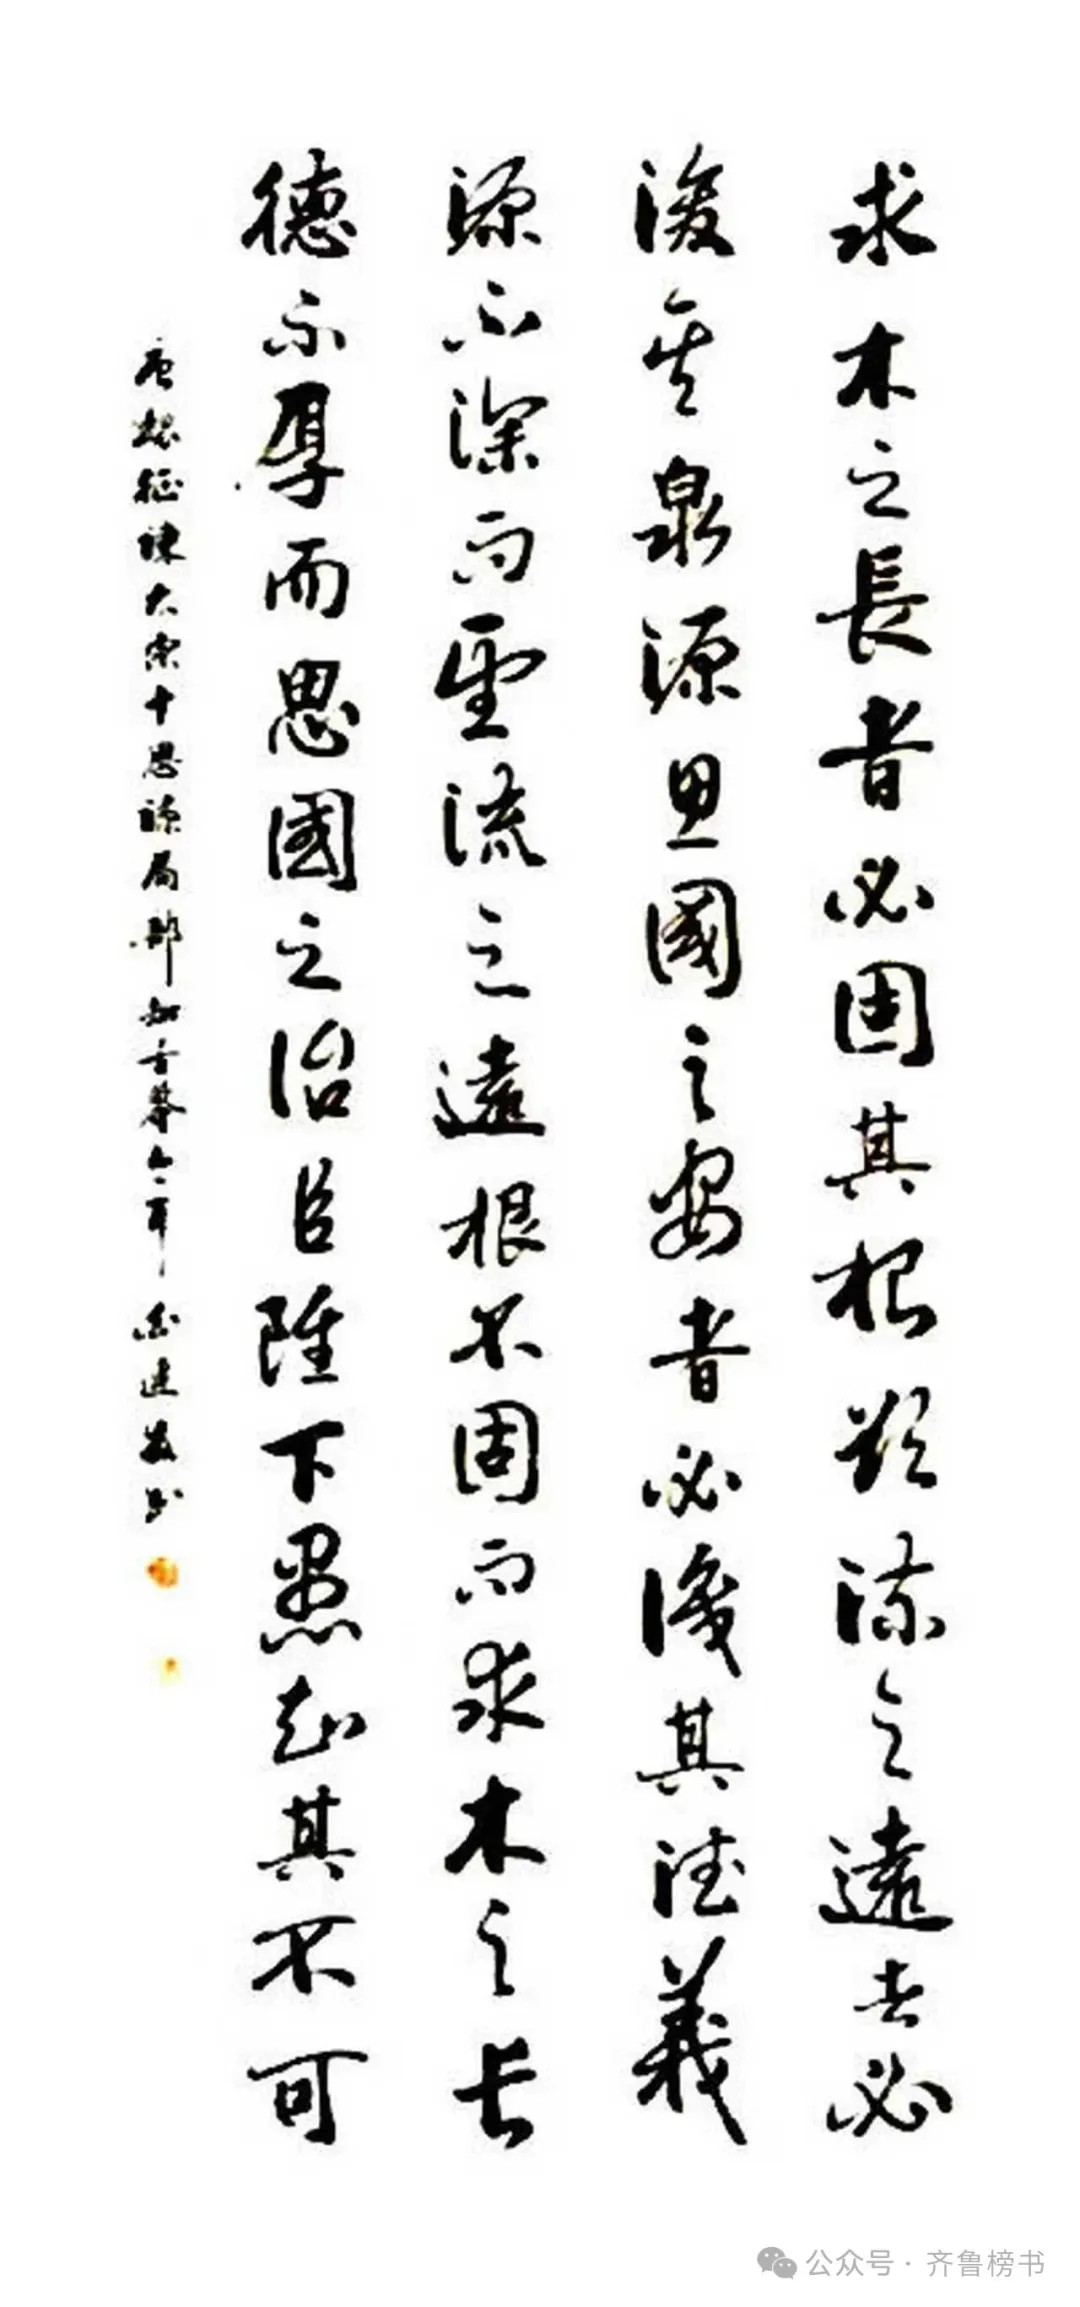 求木之長者必固其根欲流之遠者必
浚其泉源思國之安者必浚其德義
源不深而望流之遠根不固而求木之长
德不厚而思國之治臣雖下愚知其不可
唐魏征諫太宗十思疏局部
公众号·齐鲁榜书